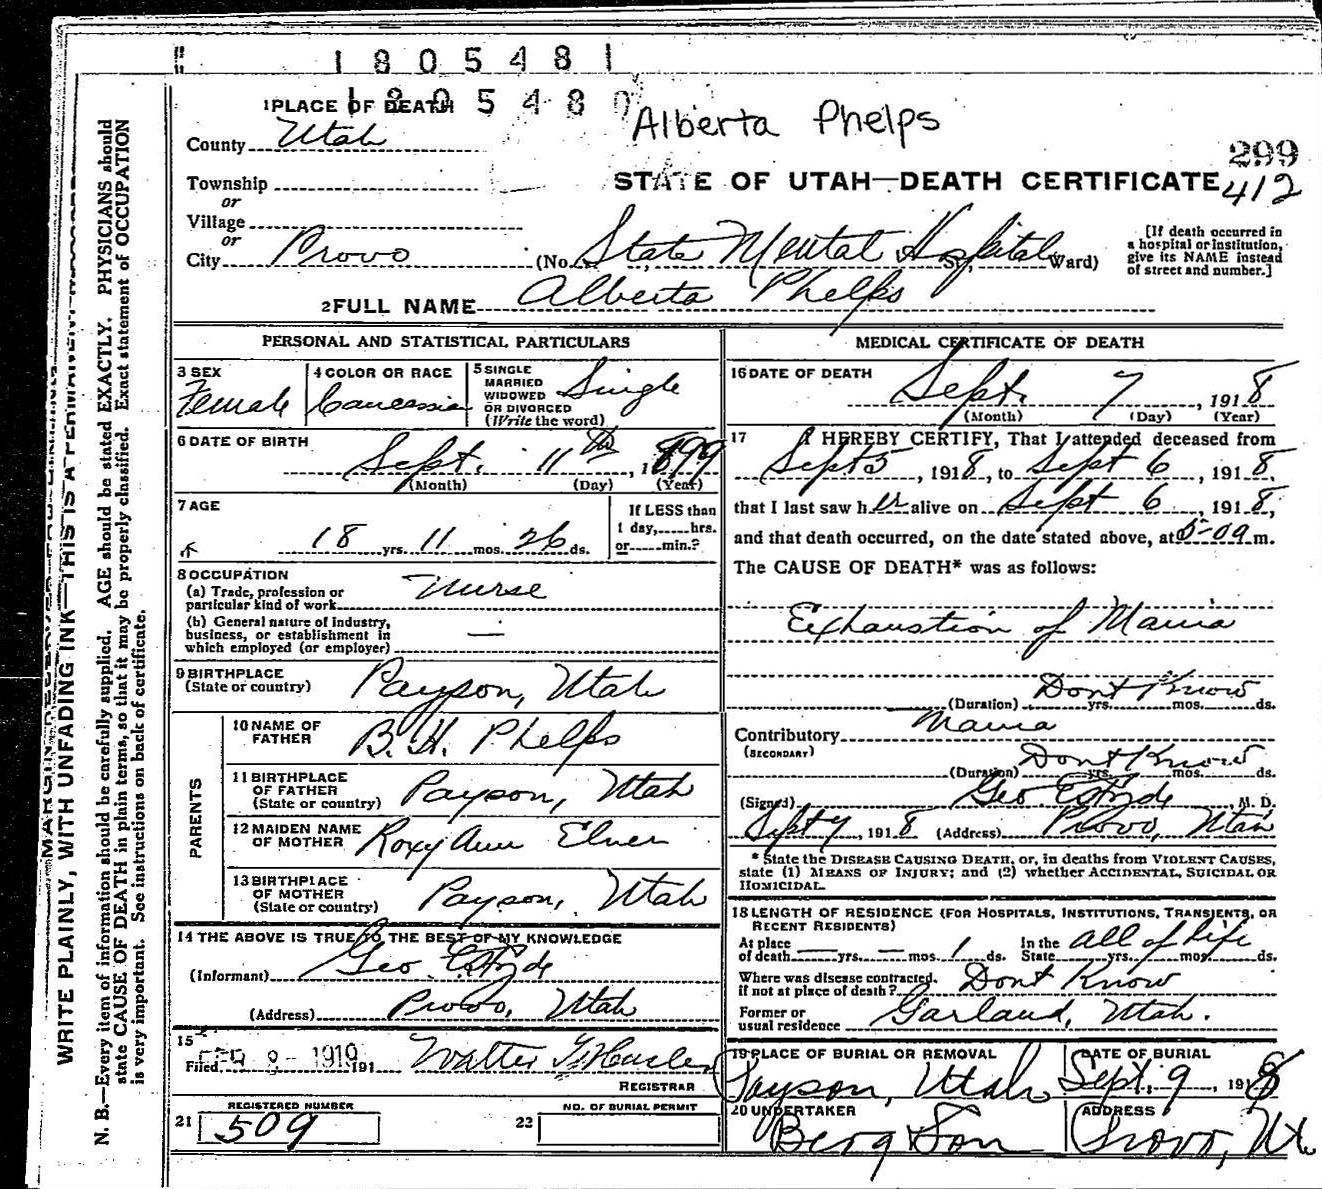 1805481
180548
Alberta Phelps
299
412
1 PLACE OF DEATH
County Utah
STATE OF UTAH—DEATH CERTIFICATE
Township
or
Village
or
City Provo (No. State Mental Hospital St., Ward)
[If death occurred in a hospital or institution, give its NAME instead of street and number.]
2 FULL NAME Alberta Phelps
PERSONAL AND STATISTICAL PARTICULARS
3 SEX Female
4 COLOR OR RACE Caucassian
5 SINGLE MARRIED WIDOWED OR DIVORCED (Write the word) Single
6 DATE OF BIRTH Sept. 11th, 1899
(Month) (Day) (Year)
7 AGE 18 yrs. 11 mos. 26 ds.
If LESS than 1 day, hrs. or min.?
8 OCCUPATION
(a) Trade, profession or particular kind of work Nurse
(b) General nature of industry, business, or establishment in which employed (or employer) —
9 BIRTHPLACE (State or country) Payson, Utah
PARENTS
10 NAME OF FATHER B. H. Phelps
11 BIRTHPLACE OF FATHER (State or country) Payson, Utah
12 MAIDEN NAME OF MOTHER Roxy Ann Elmer
13 BIRTHPLACE OF MOTHER (State or country) Payson, Utah
14 THE ABOVE IS TRUE TO THE BEST OF MY KNOWLEDGE
(Informant) Geo E Hyde
(Address) Provo, Utah
15
Filed 9 - 1919 191 Walter
REGISTRAR
REGISTERED NUMBER
21 509
NO. OF BURIAL PERMIT
22
MEDICAL CERTIFICATE OF DEATH
16 DATE OF DEATH Sept. 7, 1918
(Month) (Day) (Year)
17 I HEREBY CERTIFY, That I attended deceased from
Sept 5, 1918, to Sept 6, 1918,
that I last saw her alive on Sept 6, 1918,
and that death occurred, on the date stated above, at 5-09 m.
The CAUSE OF DEATH* was as follows:
Exhaustion of Mania
(Duration) yrs. mos. ds. Dont Know
Contributory Mania
(SECONDARY)
(Duration) yrs. mos. ds. Dont Know
(Signed) Geo E Hyde, M. D.
Sept 7, 1918 (Address) Provo, Utah
* State the DISEASE CAUSING DEATH, or, in deaths from VIOLENT CAUSES,
state (1) MEANS OF INJURY; and (2) whether ACCIDENTAL, SUICIDAL OR
HOMICIDAL.
18 LENGTH OF RESIDENCE (FOR HOSPITALS, INSTITUTIONS, TRANSIENTS, OR
RECENT RESIDENTS)
At place of death — yrs. — mos. 1 ds. In the State yrs. mos. ds. all of life
Where was disease contracted, if not at place of death? Dont Know
Former or usual residence Garland, Utah.
19 PLACE OF BURIAL OR REMOVAL Payson, Utah
DATE OF BURIAL Sept. 9, 1918
20 UNDERTAKER Berg Son
ADDRESS Provo, Ut.
WRITE PLAINLY, WITH UNFADING INK—THIS IS A PERMANENT RECORD
N. B.—Every item of information should be carefully supplied. AGE should be stated EXACTLY. PHYSICIANS should
state CAUSE OF DEATH in plain terms, so that it may be properly classified. Exact statement of OCCUPATION
is very important. See instructions on back of certificate.